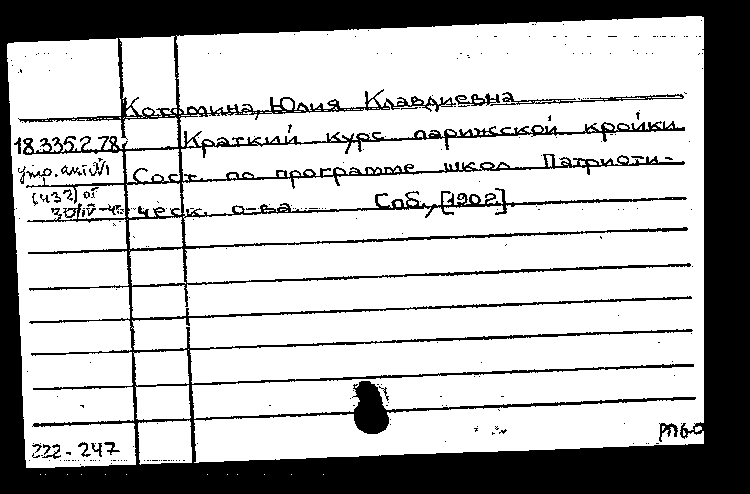 Котомина, Юлия Клавдиевна
18.335.2.78. Краткий курс парижской кройки
Сост. по программе школ Патриоти-
ческ. о-ва Спб., [1902].
222-247